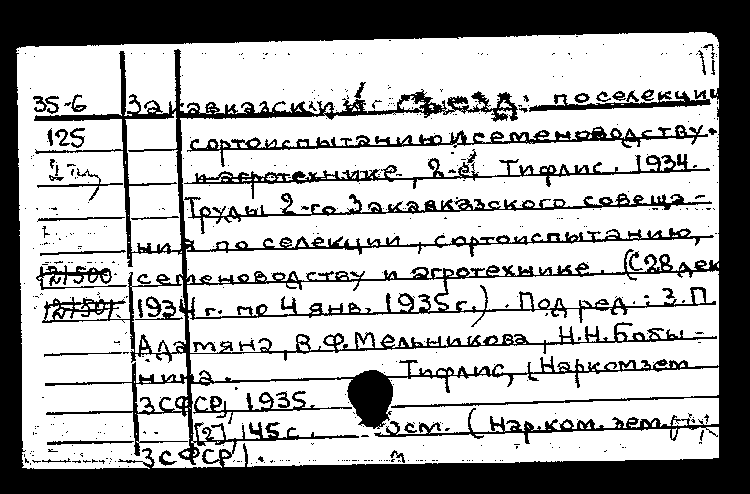 17
35-6 Закавказский съезд по селекции
125 сортоиспытанию и семеноводству.
и агротехнике, 2-й Тифлис. 1934.
Труды 2-го Закавказского совеща-
ния по селекции, сортоиспытанию,
121500 семеноводству и агротехнике. (С 28 дек
121501 1934 г. по 4 янв. 1935 г.). Под ред.: З.П.
Адамянa, В.Ф. Мельникова, Н.Н. Бобы-
нина. Тифлис, [Наркомзем
ЗСФСР], 1935.
[2], 145 с. (Нар.ком. зем.
ЗСФСР).